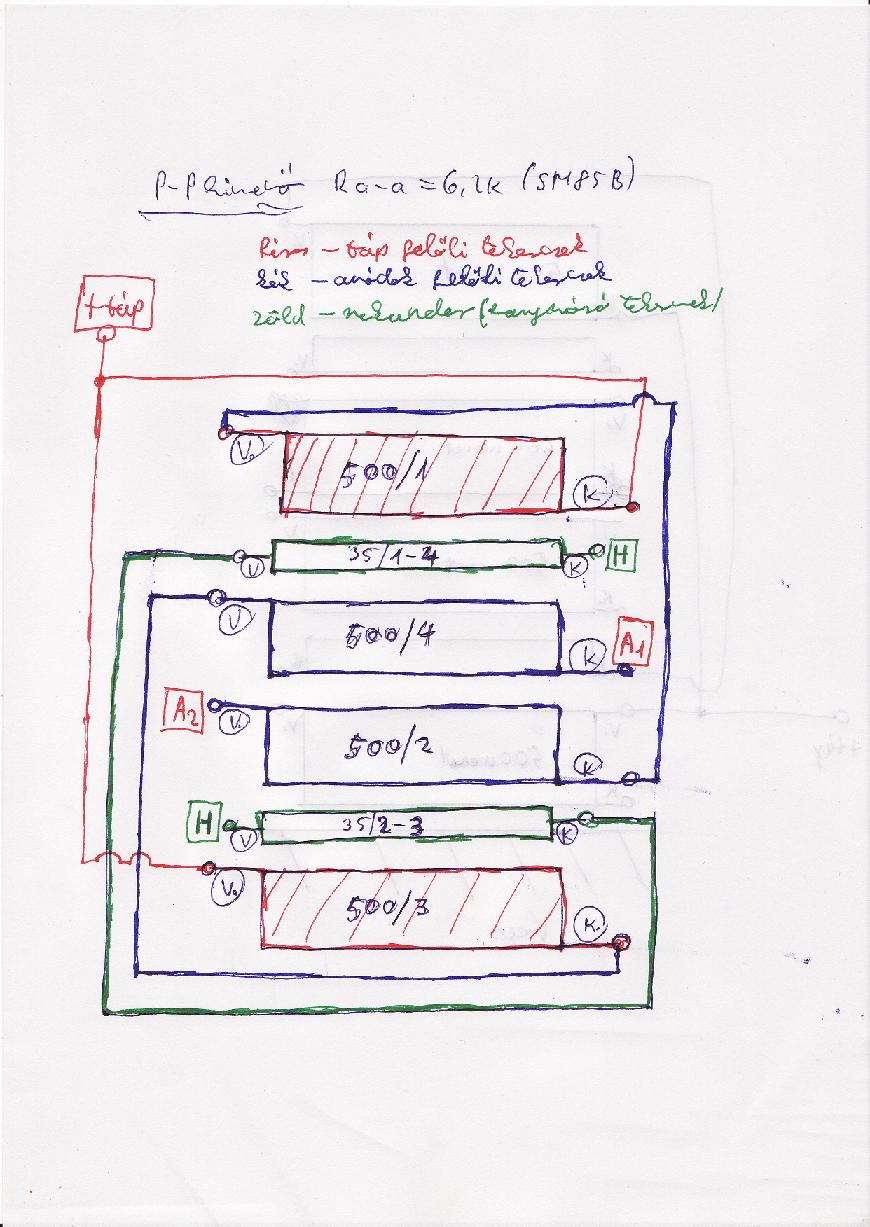 P-P kimenő Ra-a = 6,2K (SM85B)
Piros – táp felőli tekercsek
kék – anódok felőli tekercsek
zöld – szekunder (hangszóró tekercsek/
+táp
V.
500/1
K
V
35/1-4
K
H
V
500/4
K
A1
A2
V.
500/2
K
H
V
35/2-3
K
V.
500/3
K.